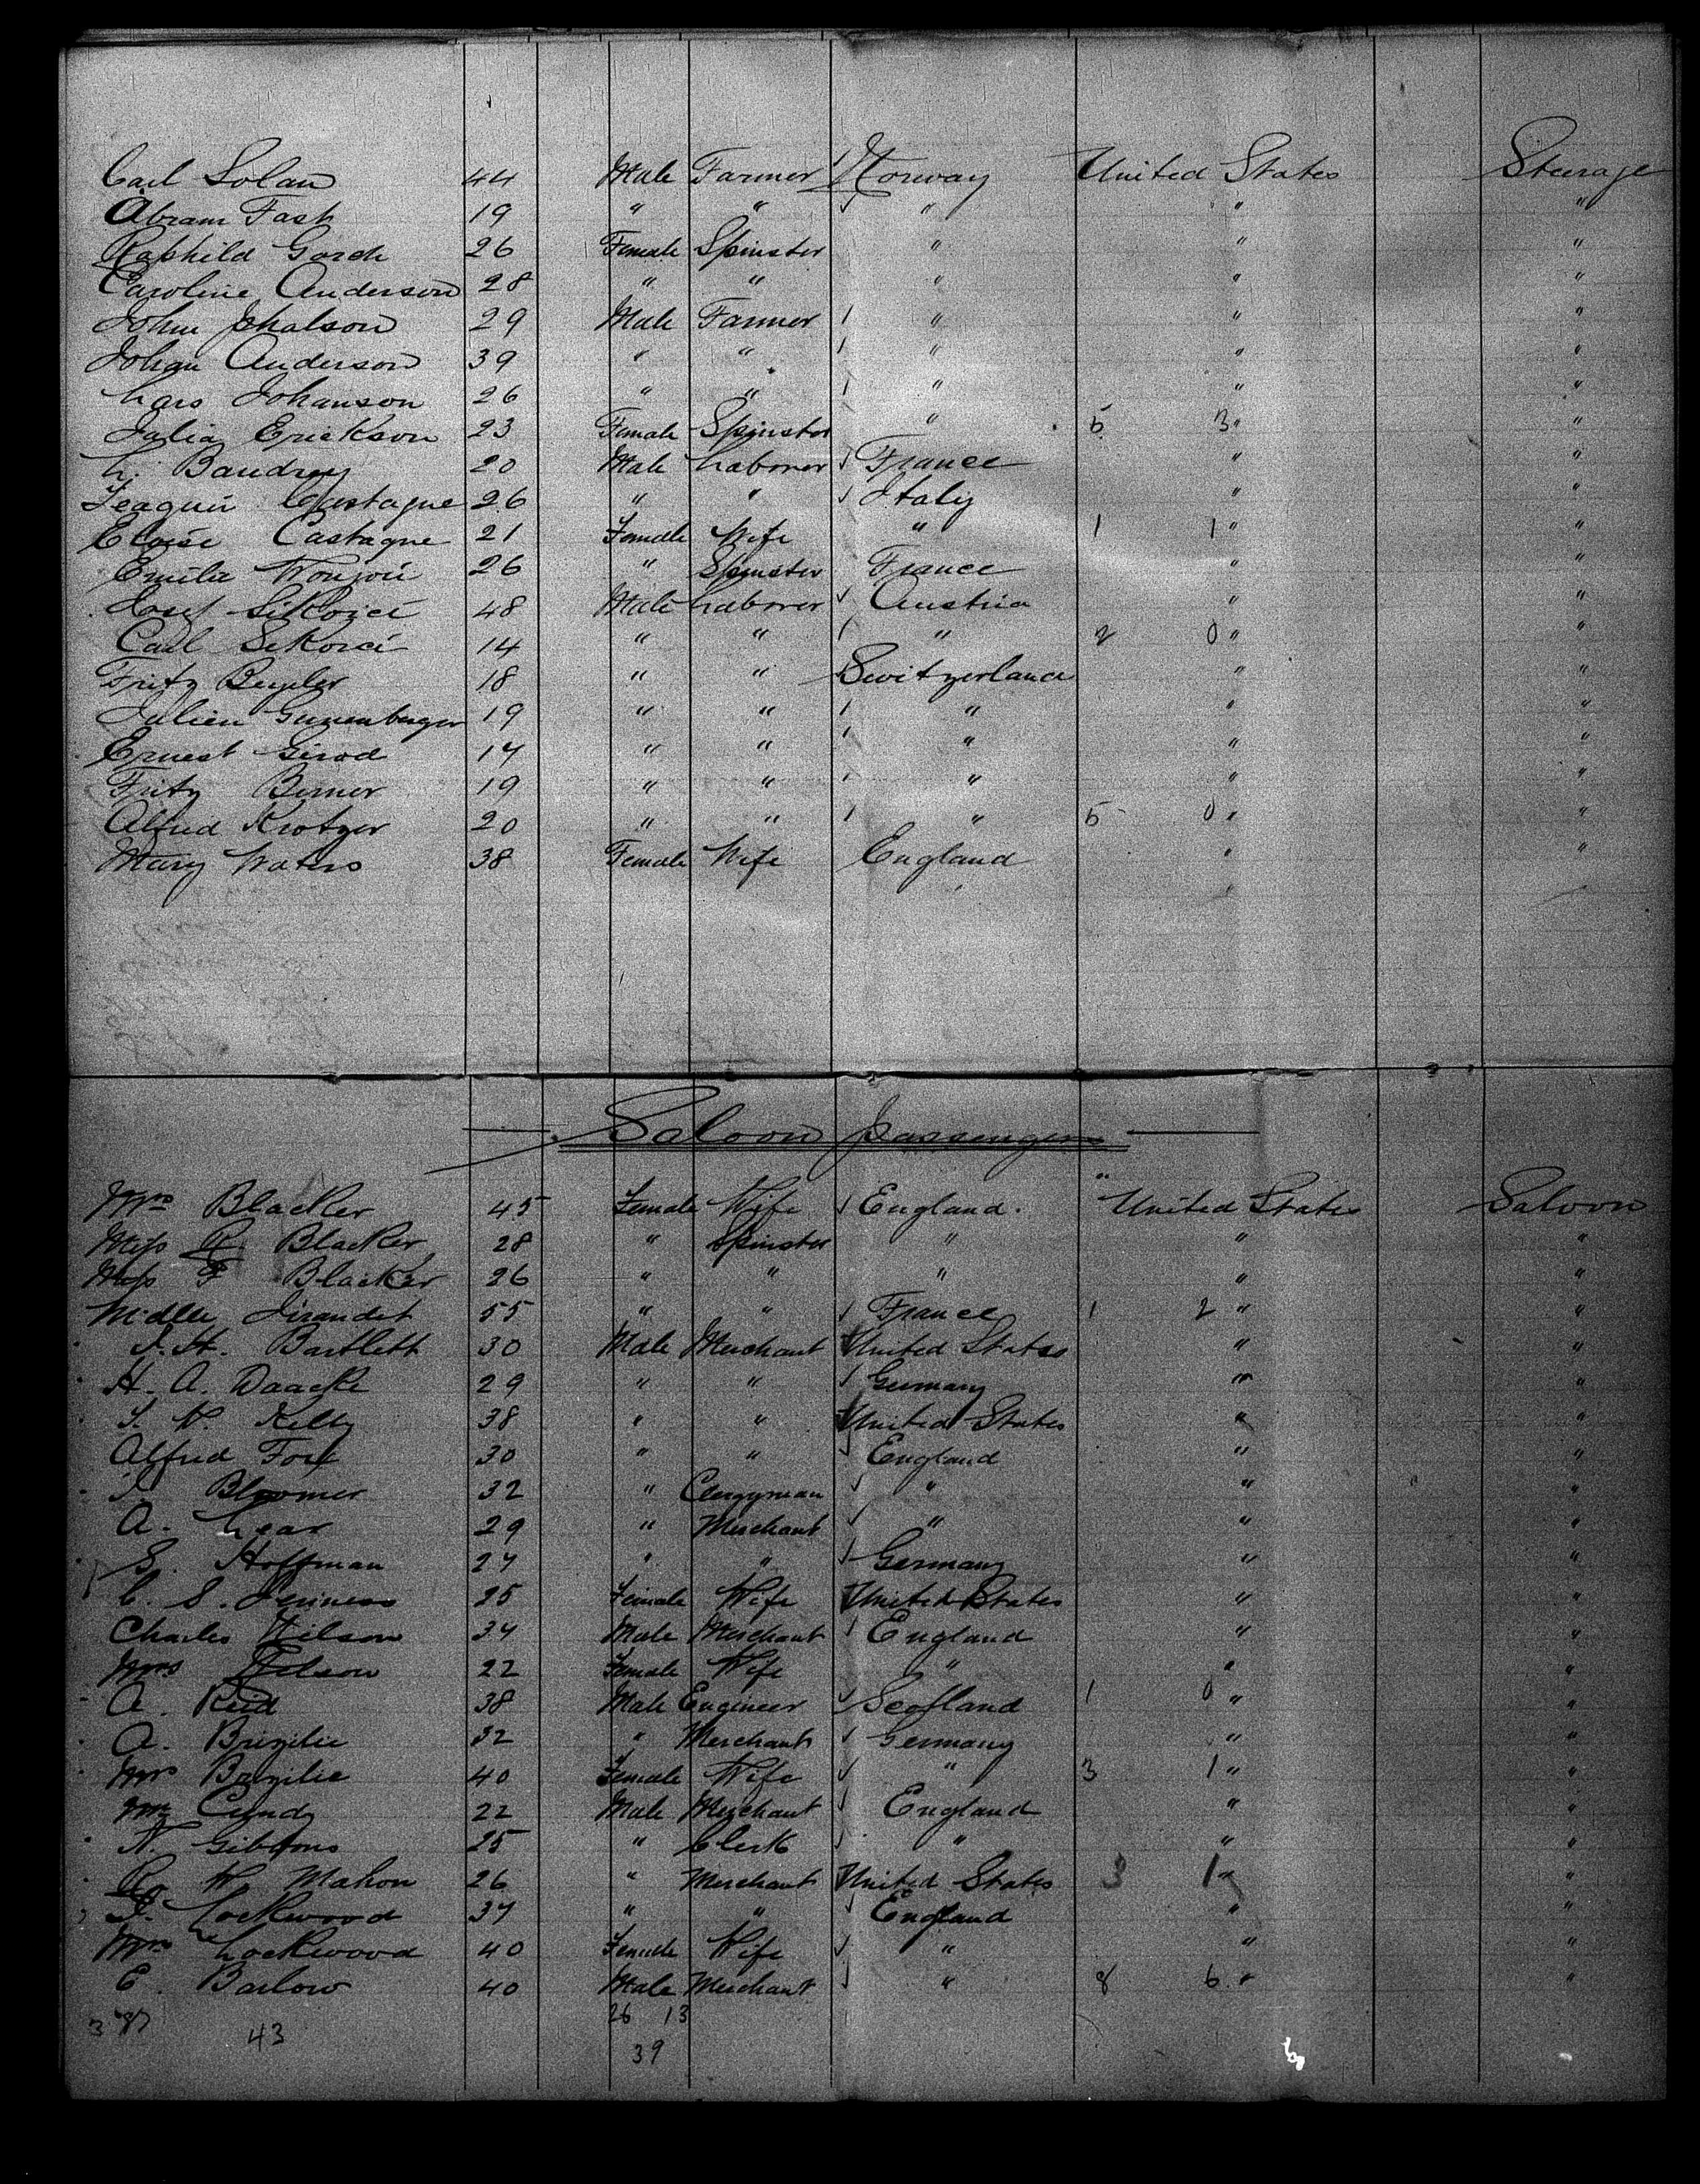 Carl Solan 44 Male Farmer Norway United States Steerage
Abram Fash 19 " " " " "
Raphild Gorch 26 Female Spinster " " "
Caroline Anderson 28 " " " " "
John Johalson 29 Male Farmer " " "
Johan Anderson 39 " " " " "
Lars Johanson 26 " " " " "
Julia Erickson 23 Female Spinster " 5 3 " "
L. Baudrey 20 Male Laborer France " "
Castagne 26 " " Italy " "
Eloise Castagne 21 Female Wife " 1 1 " "
Emilie 26 " Spinster France " "
Josef 48 Male Laborer Austria " "
Carl 14 " " " 2 0 " "
Fritz 18 " " Switzerland " "
Julien 19 " " " " "
Ernest Girod 17 " " " " "
Fritz Berner 19 " " " " "
Alfred Krotzer 20 " " " 5 0 " "
Mary Waters 38 Female Wife England " "
Saloon passengers
Mrs Blacker 45 Female Wife England. United States Saloon
Miss R Blacker 28 " Spinster " " "
Miss F Blacker 26 " " " " "
Mdlle 55 " " France 1 2 " "
Bartlett 30 Male Merchant United States " "
H. A. Daacke 29 " " Germany " "
Kelly 38 " " United States " "
Alfred Fox 30 " " England " "
Bloomer 32 " Clergyman " " "
A. Lear 29 " Merchant " " "
S. Hoffman 27 " " Germany " "
C. S. Jenness 25 Female Wife United States " "
Charles Wilson 34 Male Merchant England " "
Mrs Wilson 22 Female Wife " " "
A. Reid 38 Male Engineer Scotland 1 0 " "
A. Brizilie 32 " Merchant Germany " "
Mrs Brizilie 40 Female Wife " 3 1 " "
22 Male Merchant England " "
N. Gibbons 25 " Clerk " " "
R. W. Mahon 26 " Merchant United States 3 1 " "
Lockwood 37 " " England " "
Mrs Lockwood 40 Female Wife " " "
E. Barlow 40 Male Merchant " 8 6 " "
26 13
43
39